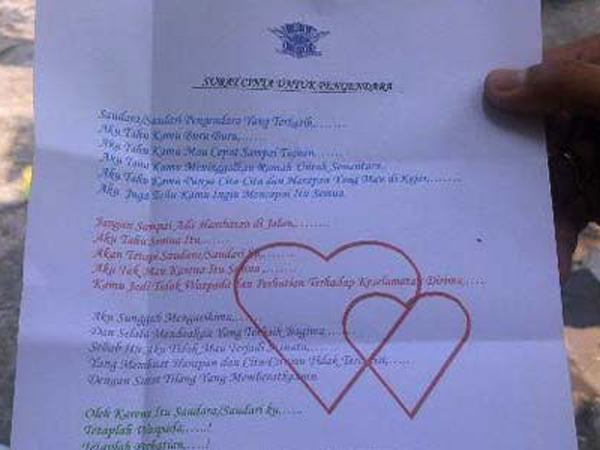 SURAT CINTA UNTUK PENGENDARA
Saudara/Saudari Pengendara Yang Terkasih,.......
Aku Tahu Kamu Buru Buru,.....
Aku Tahu Kamu Mau Cepat Sampai Tujuan......
Aku Tahu Kamu Meninggalkan Rumah Untuk Sementara.
Aku Tahu Kamu Punya Cita Cita dan Harapan Yang Mau di Kejar,.......
Aku Juga Tahu Kamu Ingin Mencapai Itu Semua.
Jangan Sampai Ada Hambatan di Jalan,.....
Aku Tahu Semua Itu,......
Akan Tetapi Saudara/Saudari
Aku Tak Mau Karena Itu Semua ........
Kamu Jadi Tidak Waspada dan Perhatian Terhadap Keselamatan Dirimu,.....
Aku Sungguh Mengasihimu,......
Dan Selalu Mendoakan Yang Terbaik Bagimu
Sebab Itu Aku Tidak Mau Terjadi
Yang Membuat Harapan dan Cita-Citamu Tidak
Dengan Surat Tilang Yang Memberatkanmu.
Oleh Karena Itu Saudara/Saudari ku,.....
Tetaplah Waspada,.....!
Tetaplah Perhatian,.....!